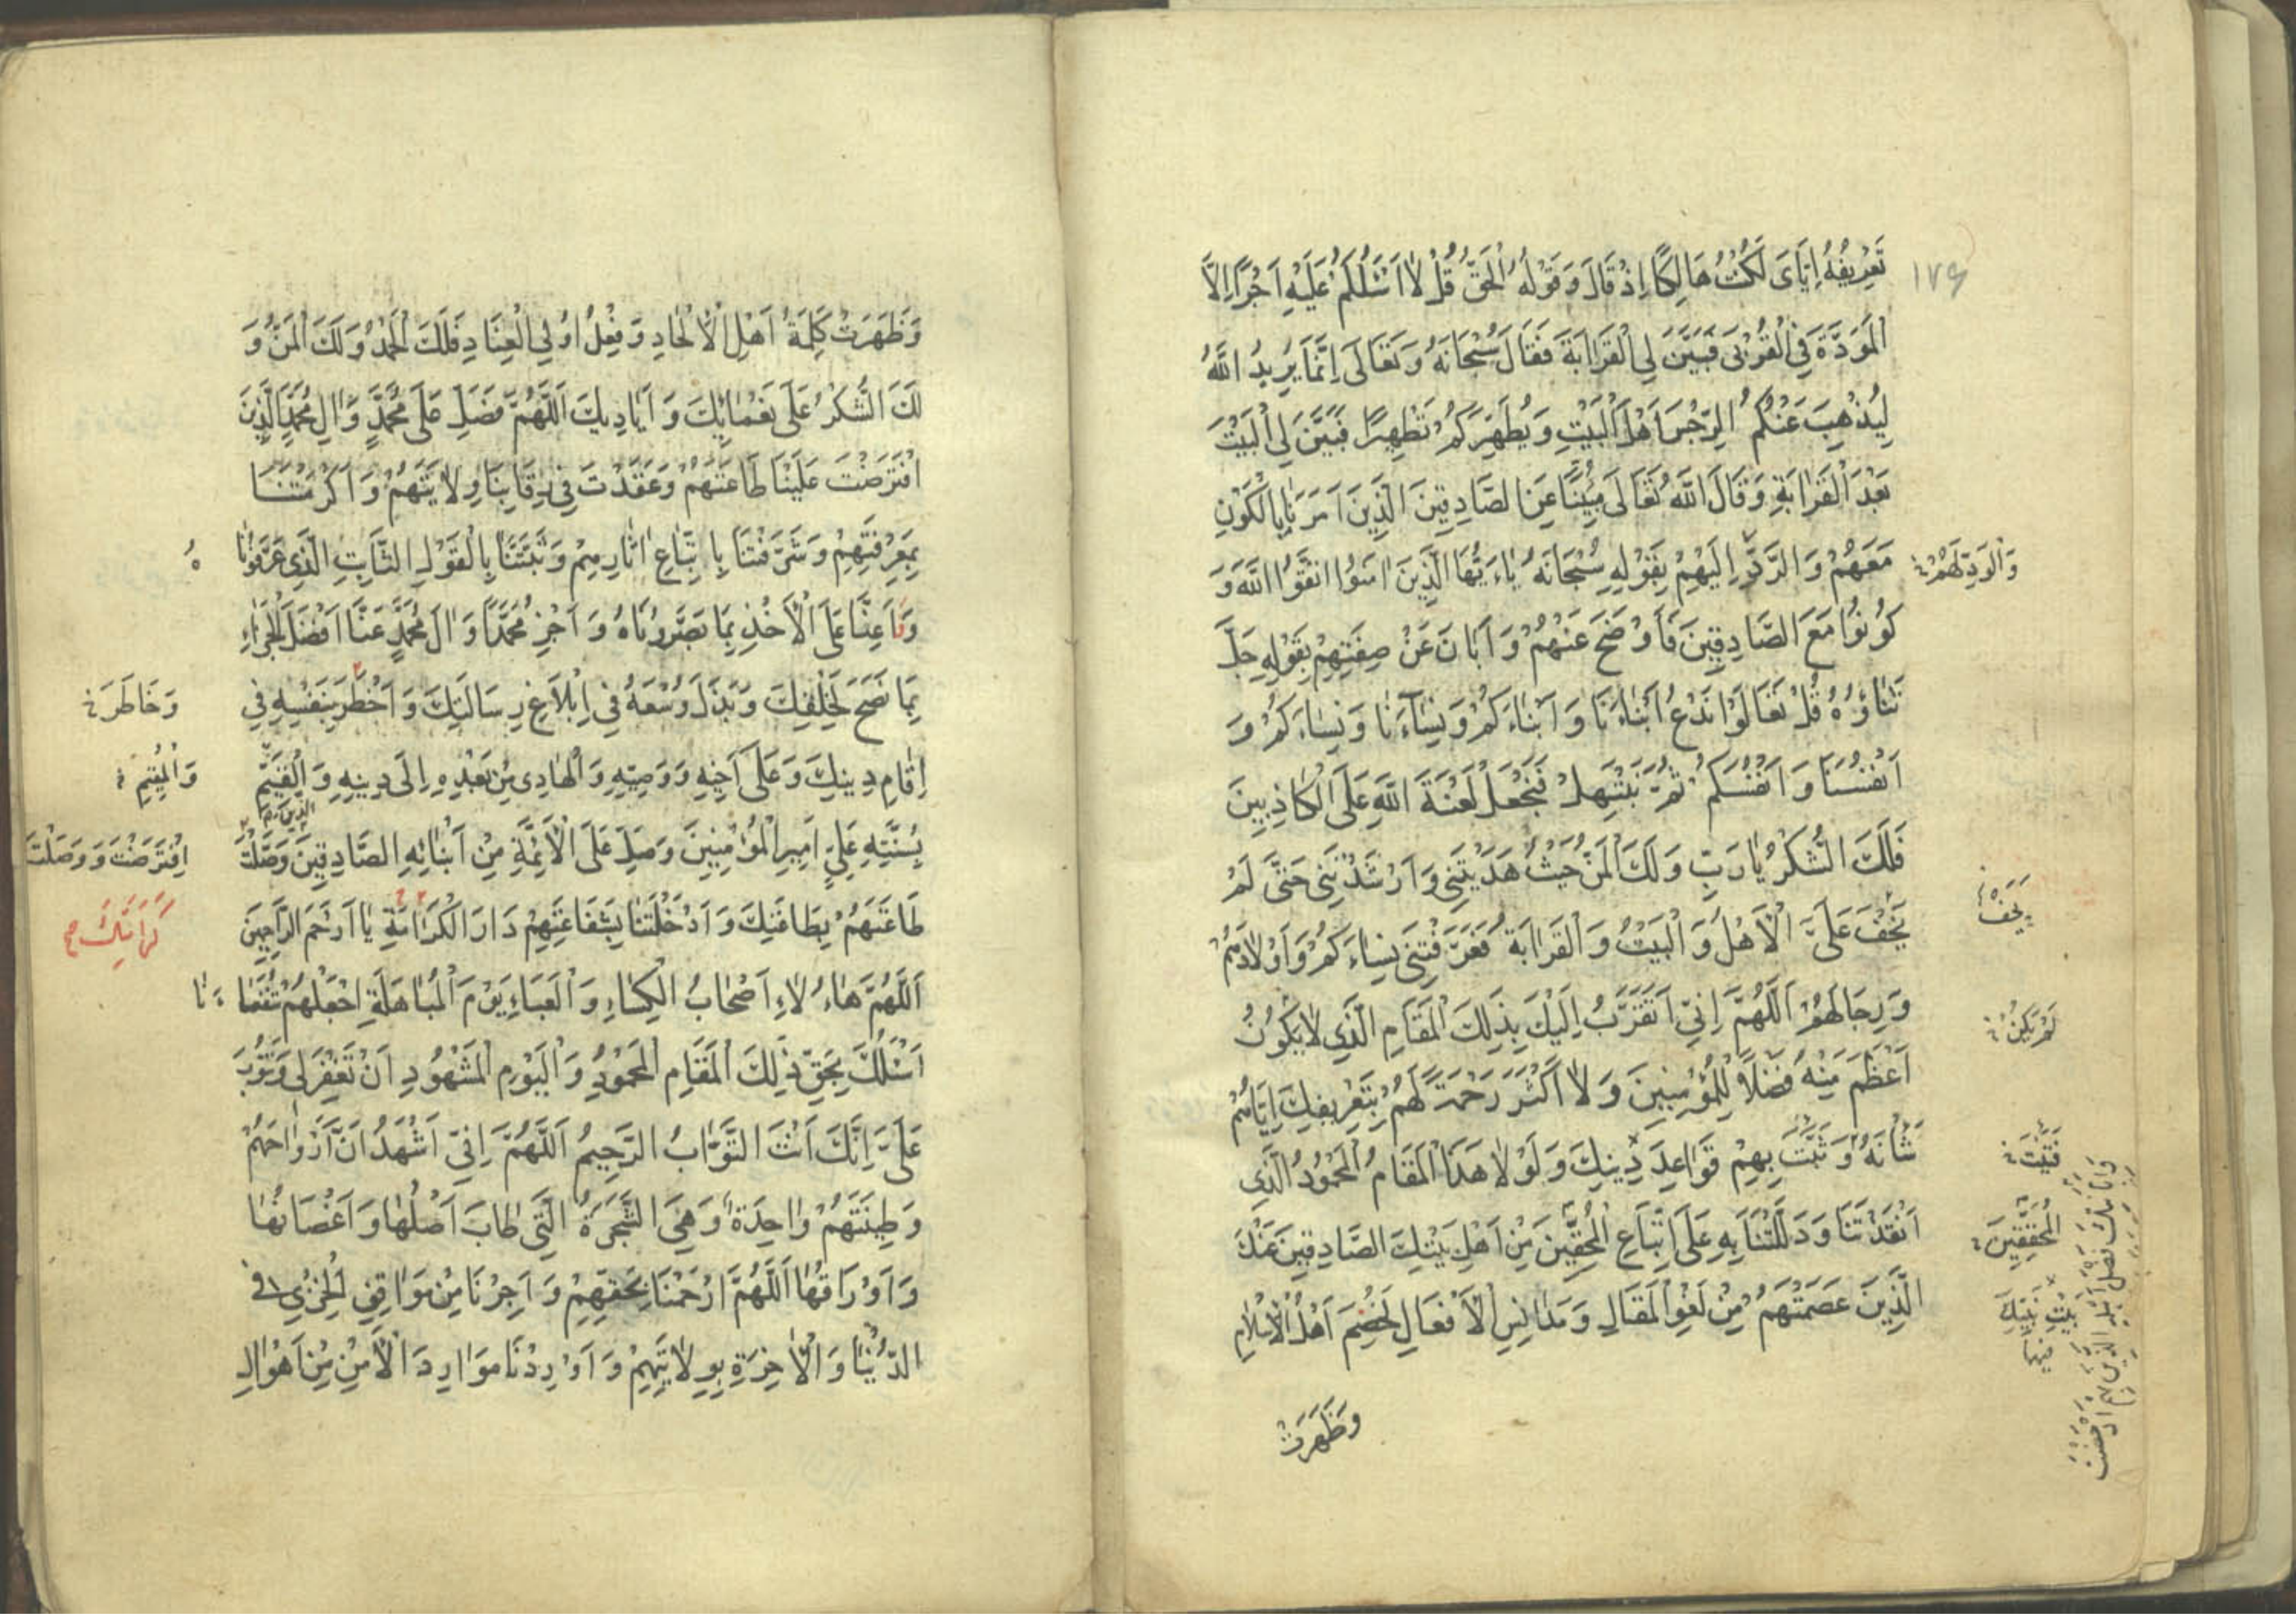 ١٧٩
تَعْرِيفُهُ اِيَّايَ لَكُنْتُ هَالِكًا اِذْ قَالَ وَقَوْلُهُ الْحَقُّ قُلْ لَا اَسْئَلُكُمْ عَلَيْهِ اَجْرًا اِلَّا
الْمَوَدَّةَ فِي الْقُرْبٰى فَبَيَّنَ لِي الْقَرَابَةَ فَقَالَ سُبْحَانَهُ وَتَعَالٰى اِنَّمَا يُرِيدُ اللّٰهُ
لِيُذْهِبَ عَنْكُمُ الرِّجْسَ اَهْلَ الْبَيْتِ وَيُطَهِّرَكُمْ تَطْهِيرًا فَبَيَّنَ لِي الْبَيْتَ
بَعْدَ الْقَرَابَةِ وَقَالَ اللّٰهُ تَعَالٰى مُبَيِّنًا عَنِ الصَّادِقِينَ الَّذِينَ اَمَرَنَا بِالْكَوْنِ
مَعَهُمْ وَالرَّدِّ اِلَيْهِمْ بِقَوْلِهِ سُبْحَانَهُ يَا اَيُّهَا الَّذِينَ اٰمَنُوا اتَّقُوا اللّٰهَ وَ
كُونُوا مَعَ الصَّادِقِينَ فَاَوْضَحَ عَنْهُمْ وَاَبَانَ عَنْ صِفَتِهِمْ بِقَوْلِهِ جَلَّ
ثَنَاؤُهُ قُلْ تَعَالَوْا نَدْعُ اَبْنَاءَنَا وَاَبْنَاءَكُمْ وَنِسَاءَنَا وَنِسَاءَكُمْ وَ
اَنْفُسَنَا وَاَنْفُسَكُمْ ثُمَّ نَبْتَهِلْ فَنَجْعَلْ لَعْنَةَ اللّٰهِ عَلَى الْكَاذِبِينَ
فَلَكَ الشُّكْرُ يَا رَبِّ وَلَكَ الْمَنُّ حَيْثُ هَدَيْتَنِي وَاَرْشَدْتَنِي حَتّٰى لَمْ
يَخْفَ عَلَيَّ الْاَهْلُ وَالْبَيْتُ وَالْقَرَابَةُ فَعَرَّفْتَنِي نِسَاءَهُمْ وَاَوْلَادَهُمْ
وَرِجَالَهُمْ اَللّٰهُمَّ اِنِّي اَتَقَرَّبُ اِلَيْكَ بِذٰلِكَ الْمَقَامِ الَّذِي لَا يَكُونُ
اَعْظَمَ مِنْهُ فَضْلًا لِلْمُؤْمِنِينَ وَلَا اَكْثَرَ رَحْمَةً لَهُمْ بِتَعْرِيفِكَ اِيَّاهُمْ
شَاْنَهُ وَثَبَّتَّ بِهِمْ قَوَاعِدَ دِينِكَ وَلَوْلَا هٰذَا الْمَقَامُ الْمَحْمُودُ الَّذِي
اَنْقَذْتَنَا وَدَلَلْتَنَا بِهِ عَلَى اتِّبَاعِ الْمُحِقِّينَ مِنْ اَهْلِ بَيْتِكَ الصَّادِقِينَ عَنْكَ
الَّذِينَ عَصَمْتَهُمْ مِنْ لَغْوِ الْمَقَالِ وَمَدَانِسِ الْاَفْعَالِ لَخُصِمَ اَهْلُ الْاِسْلَامِ
وَظَهَرَتْ
وَالْوَدِّ لَهُمْ
يَخْفَ
لَمْ يَكُنْ
الْمُحَقِّقِينَ
بَيْتِ نَبِيِّكَ
وَظَهَرَتْ كَلِمَةُ اَهْلِ الْاِلْحَادِ وَفِعْلُ اُولِي الْعِنَادِ فَلَكَ الْحَمْدُ وَلَكَ الْمَنُّ وَ
لَكَ الشُّكْرُ عَلٰى نَعْمَائِكَ وَاَيَادِيكَ اَللّٰهُمَّ فَصَلِّ عَلٰى مُحَمَّدٍ وَاٰلِ مُحَمَّدٍ الَّذِينَ
افْتَرَضْتَ عَلَيْنَا طَاعَتَهُمْ وَعَقَدْتَ فِي رِقَابِنَا وِلَايَتَهُمْ وَاَكْرَمْتَنَا
بِمَعْرِفَتِهِمْ وَشَرَّفْتَنَا بِاتِّبَاعِ اٰثَارِهِمْ وَثَبَّتَّنَا بِالْقَوْلِ الثَّابِتِ الَّذِي عَرَّفُونَا
وَاَعِنَّا عَلَى الْاَخْذِ بِمَا بَصَّرُونَاهُ وَاَجْزِ مُحَمَّدًا وَاٰلَ مُحَمَّدٍ عَنَّا اَفْضَلَ الْجَزَاءِ
بِمَا نَصَحَ لِخَلْقِكَ وَبَذَلَ وُسْعَهُ فِي اِبْلَاغِ رِسَالَتِكَ وَاَخْطَرَ بِنَفْسِهِ فِي
اِقَامِ دِينِكَ وَعَلٰى اَخِيهِ وَوَصِيِّهِ وَالْهَادِي مِنْ بَعْدِهِ اِلٰى دِينِهِ وَالْقَيِّمِ
بِسُنَّتِهِ عَلِيٍّ اَمِيرِ الْمُؤْمِنِينَ وَصَلِّ عَلَى الْاَئِمَّةِ مِنْ اَبْنَائِهِ الصَّادِقِينَ الَّذِينَ وَصَلْتَ
طَاعَتَهُمْ بِطَاعَتِكَ وَاَدْخَلْتَنَا بِشَفَاعَتِهِمْ دَارَ الْكَرَامَةِ يَا اَرْحَمَ الرَّاحِمِينَ
اَللّٰهُمَّ هٰؤُلَاءِ اَصْحَابُ الْكِسَاءِ وَالْعَبَاءِ يَوْمَ الْمُبَاهَلَةِ اجْعَلْهُمْ شُفَعَاءَ
اَسْئَلُكَ بِحَقِّ ذٰلِكَ الْمَقَامِ الْمَحْمُودِ وَالْيَوْمِ الْمَشْهُودِ اَنْ تَغْفِرَ لِي وَتَتُوبَ
عَلَيَّ اِنَّكَ اَنْتَ التَّوَّابُ الرَّحِيمُ اَللّٰهُمَّ اِنِّي اَشْهَدُ اَنَّ اَرْوَاحَهُمْ
وَطِينَتَهُمْ وَاحِدَةٌ وَهِيَ الشَّجَرَةُ الَّتِي طَابَ اَصْلُهَا وَاَغْصَانُهَا
وَاَوْرَاقُهَا اَللّٰهُمَّ ارْحَمْنَا بِحَقِّهِمْ وَاَجِرْنَا مِنْ مَوَاقِفِ الْخِزْيِ فِي
الدُّنْيَا وَالْاٰخِرَةِ بِوِلَايَتِهِمْ وَاَوْرِدْنَا مَوَارِدَ الْاَمْنِ مِنْ اَهْوَالِ
هُ
وَخَاطَرَ
وَالْمُقِيمِ
افْتَرَضْتَ وَوَصَلْتَ
كَرَامَتِكَ
نَا